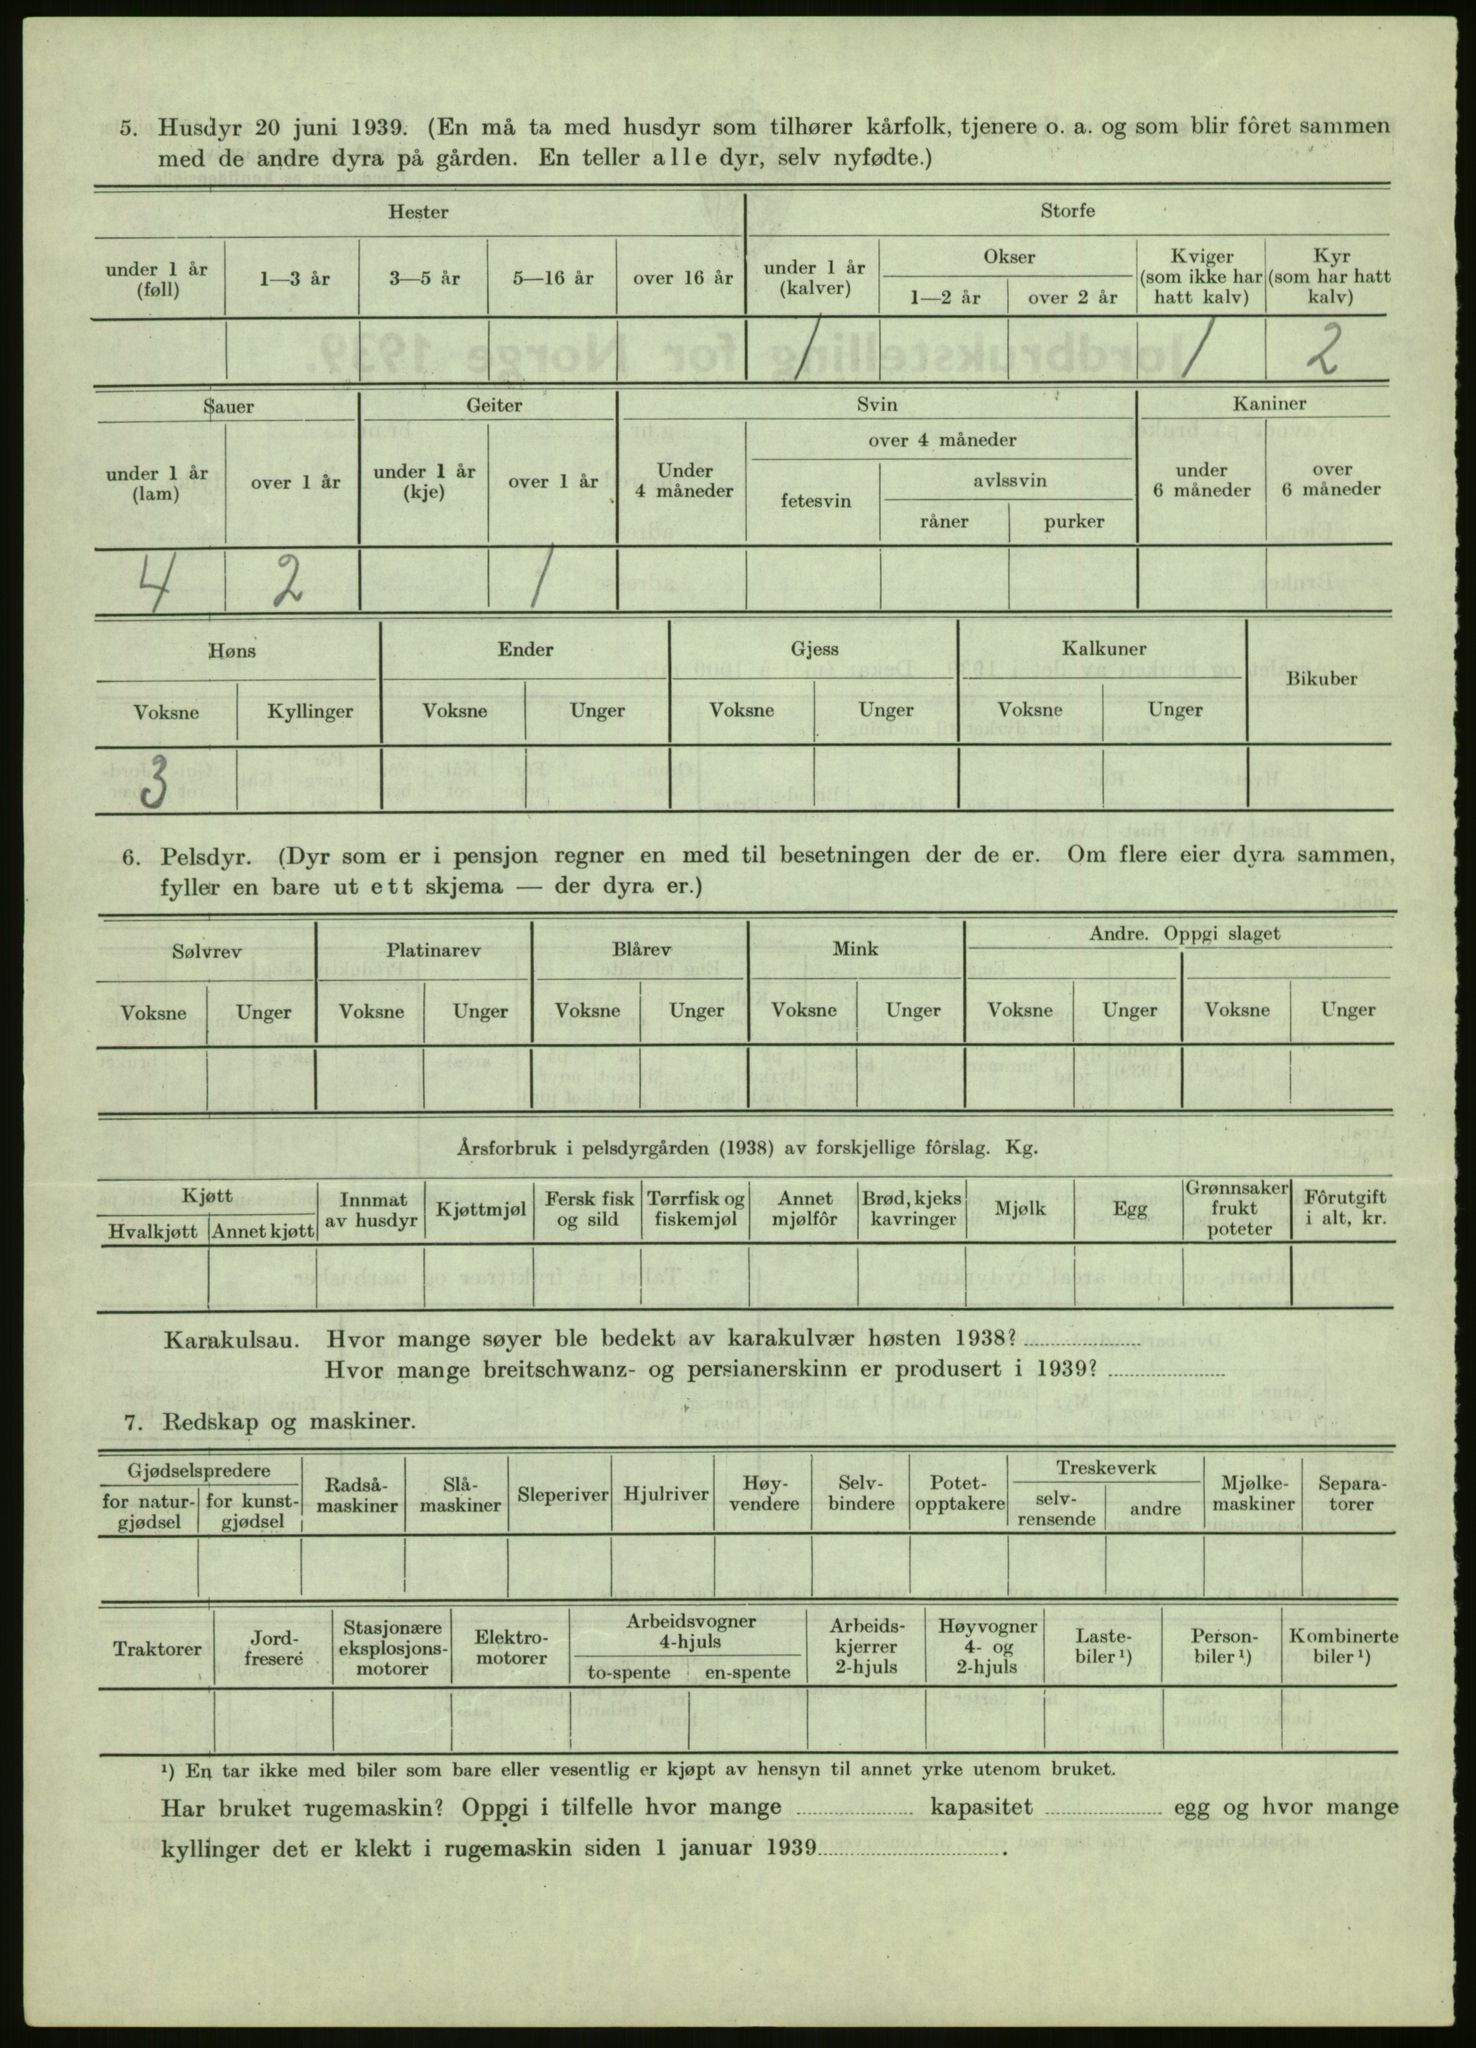 5. Husdyr 20 juni 1939. (En må ta med husdyr som tilhører kårfolk, tjenere o. a. og som blir fôret sammen
med de andre dyra på gården. En teller alle dyr, selv nyfødte.)
Hester Storfe
under 1 år (føll) 1—3 år 3—5 år 5—16 år over 16 år under 1 år (kalver) Okser 1—2 år over 2 år Kviger (som ikke har hatt kalv) Kyr (som har hatt kalv)
1 1 2
Sauer Geiter Svin Kaniner
under 1 år (lam) over 1 år under 1 år (kje) over 1 år Under 4 måneder over 4 måneder fetesvin avlssvin råner purker under 6 måneder over 6 måneder
4 2 1
Høns Ender Gjess Kalkuner Bikuber
Voksne Kyllinger Voksne Unger Voksne Unger Voksne Unger
3
6. Pelsdyr. (Dyr som er i pensjon regner en med til besetningen der de er. Om flere eier dyra sammen,
fyller en bare ut ett skjema — der dyra er.)
Sølvrev Platinarev Blårev Mink Andre. Oppgi slaget
Voksne Unger Voksne Unger Voksne Unger Voksne Unger Voksne Unger Voksne Unger
Årsforbruk i pelsdyrgården (1938) av forskjellige fôrslag. Kg.
Kjøtt Hvalkjøtt Annet kjøtt Innmat av husdyr Kjøttmjøl Fersk fisk og sild Tørrfisk og fiskemjøl Annet mjølfôr Brød, kjeks kavringer Mjølk Egg Grønnsaker frukt poteter Fôrutgift i alt, kr.
Karakulsau. Hvor mange søyer ble bedekt av karakulvær høsten 1938?
Hvor mange breitschwanz- og persianerskinn er produsert i 1939?
7. Redskap og maskiner.
Gjødselspredere for natur- gjødsel for kunst- gjødsel Radså- maskiner Slå- maskiner Sleperiver Hjulriver Høy- vendere Selv- bindere Potet- opptakere Treskeverk selv- rensende andre Mjølke- maskiner Separa- torer
Traktorer Jord- fresere Stasjonære eksplosjons- motorer Elektro- motorer Arbeidsvogner 4-hjuls to-spente en-spente Arbeids- kjerrer 2-hjuls Høyvogner 4- og 2-hjuls Laste- biler ¹) Person- biler ¹) Kombinerte biler ¹)
¹) En tar ikke med biler som bare eller vesentlig er kjøpt av hensyn til annet yrke utenom bruket.
Har bruket rugemaskin? Oppgi i tilfelle hvor mange kapasitet egg og hvor mange
kyllinger det er klekt i rugemaskin siden 1 januar 1939.